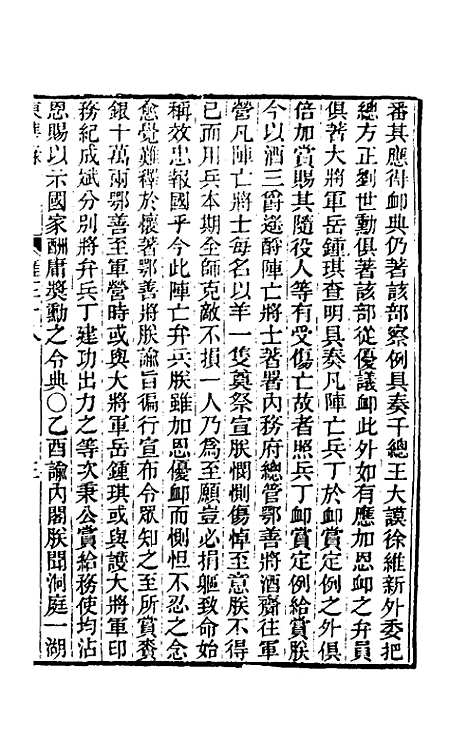 番其應得䘏典仍著該部察例具奏千總王大謨徐維新外委把
總方正劉世勳俱著該部從優議䘏此外如有應加恩䘏之弁員
俱著大將軍岳鍾琪查明具奏凡陣亡兵丁於䘏賞定例之外俱
倍加賞賜其隨役人等有受傷亡故者照兵丁䘏賞定例給賞朕
今以酒三爵遙酹陣亡將士著署內務府總管鄂善將酒齎往軍
營凡陣亡將士每名以羊一隻奠祭宣朕憫惻傷悼至意朕不得
已而用兵本期全師克敵不損一人乃爲至願豈必捐軀致命始
稱效忠報國乎今此陣亡弁兵朕雖加恩優䘏而惻怛不忍之念
愈覺難釋於懷著鄂善將朕諭旨徧行宣布令眾知之至所賞賚
銀十萬兩鄂善至軍營時或與大將軍岳鍾琪或與護大將軍印
務紀成斌分別將弁兵丁建功出力之等次秉公賞給務使均沾
恩賜以示國家酬庸獎勳之令典〇乙酉諭內閣朕聞洞庭一湖
東華錄 雍正十八 三